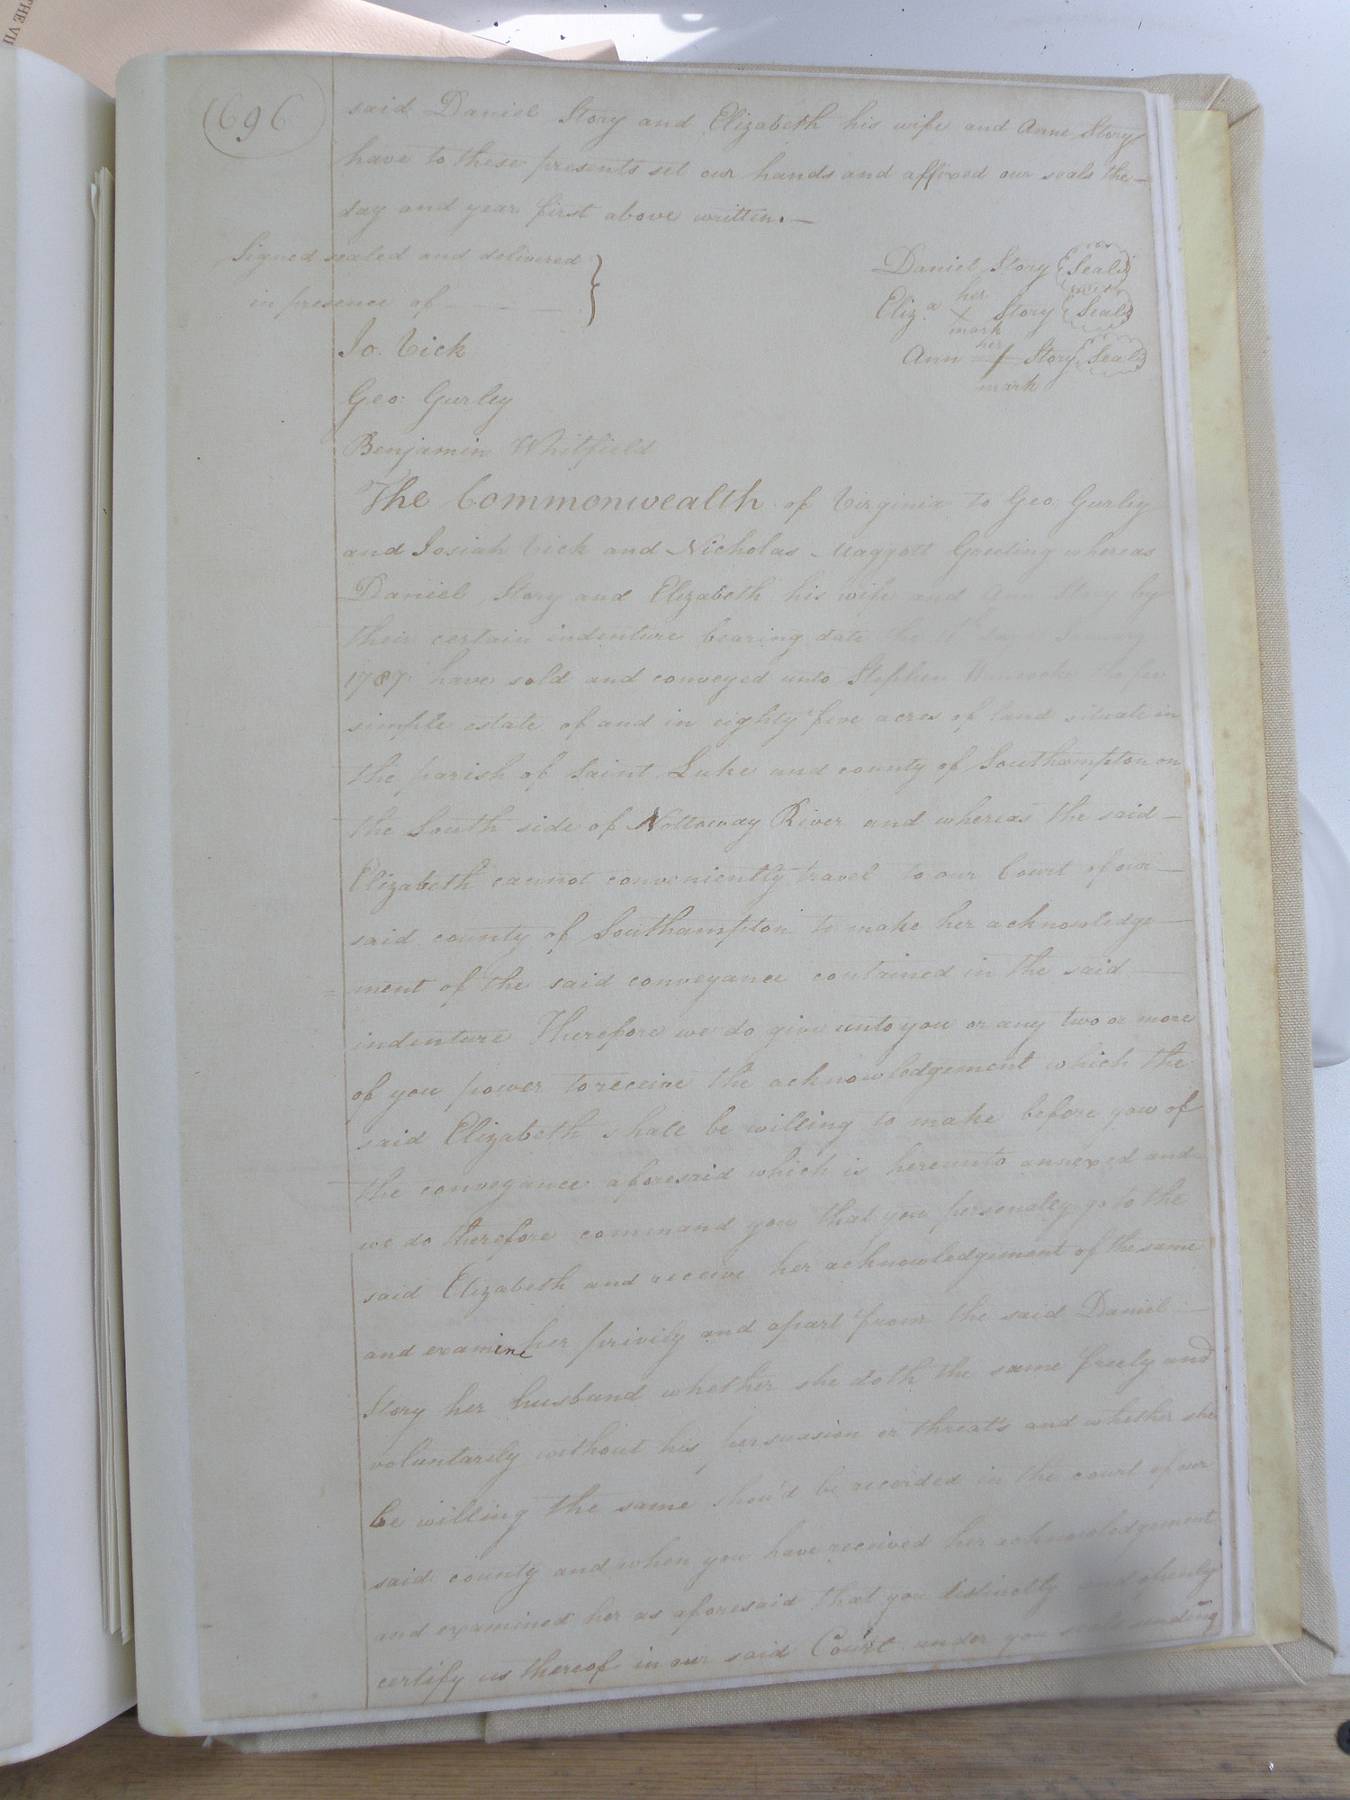 THE VII
696
said Daniel Story and Elizabeth his wife and Anne Story
have to these presents set our hands and affixed our seals the—
day and year first above written.—
Signed sealed and delivered }
in presence of
Daniel Story (Seal)
Eliz.a her X mark Story (Seal)
Ann her + mark Story (Seal)
Jo. Vick
Geo: Gurley
Benjamin Whitfield
The Commonwealth of Virginia to Geo: Gurley
and Josiah Vick and Nicholas Maggott Greeting whereas
Daniel Story and Elizabeth his wife and Ann Story by
their certain indenture bearing date the
1787 have sold and conveyed unto Stephen the fee
simple estate of and in eighty five acres of land situate in
the parish of Saint Luke and county of Southampton on
the South side of Nottoway River and whereas the said—
Elizabeth cannot conveniently travel to our Court of our—
said county of Southampton to make her acknowledge—
ment of the said conveyance contained in the said—
indenture Therefore we do give unto you or any two or more
of you power to receive the acknowledgement which the
said Elizabeth shall be willing to make before you of
the conveyance aforesaid which is hereunto annexed and
we do therefore command you that you personally go to the
said Elizabeth and receive her acknowledgement of the same
and examine her privily and apart from the said Daniel—
Story her husband whether she doth the same freely and
voluntarily without his persuasion or threats and whether she
be willing the same shou'd be recorded in the court of our
said county and when you have received her acknowledgement
and examined her as aforesaid that you distinctly and openly
certify us thereof in our said Court under you seals sending